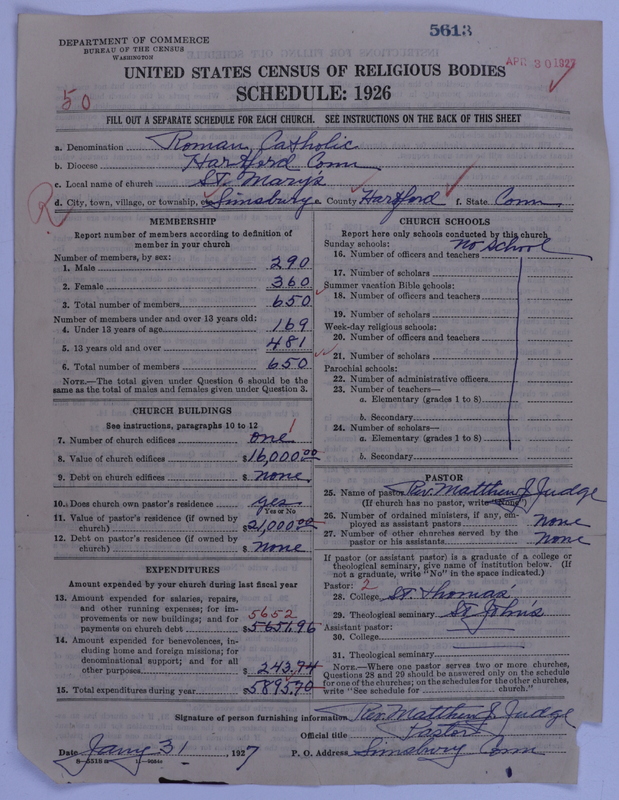 5613
DEPARTMENT OF COMMERCE
BUREAU OF THE CENSUS
WASHINGTON
APR 30 1927
UNITED STATES CENSUS OF RELIGIOUS BODIES
SCHEDULE: 1926
50
FILL OUT A SEPARATE SCHEDULE FOR EACH CHURCH. SEE INSTRUCTIONS ON THE BACK OF THIS SHEET
a. Denomination Roman Catholic
b. Diocese Hartford Conn
c. Local name of church St. Mary's
R
d. City, town, village, or township, Simsbury e. County Hartford f. State Conn
MEMBERSHIP
Report number of members according to definition of
member in your church
Number of members, by sex:
1. Male 290
2. Female 360
3. Total number of members 650
Number of members under and over 13 years old:
4. Under 13 years of age 169
5. 13 years old and over 481
6. Total number of members 650
NOTE.—The total given under Question 6 should be the
same as the total of males and females given under Question 3.
CHURCH BUILDINGS
See instructions, paragraphs 10 to 12
7. Number of church edifices one 1
8. Value of church edifices $16,000.00
9. Debt on church edifices $ none
10. Does church own pastor's residence yes
Yes or No
11. Value of pastor's residence (if owned by
church) $21,000.00
12. Debt on pastor's residence (if owned by
church) $ none
EXPENDITURES
Amount expended by your church during last fiscal year
13. Amount expended for salaries, repairs,
and other running expenses; for im-
provements or new buildings; and for 5652
payments on church debt $5651.96
14. Amount expended for benevolences, in-
cluding home and foreign missions; for
denominational support; and for all
other purposes $243.94
15. Total expenditures during year $5895.90
CHURCH SCHOOLS
Report here only schools conducted by this church
Sunday schools: no school
16. Number of officers and teachers
17. Number of scholars
Summer vacation Bible schools:
18. Number of officers and teachers
19. Number of scholars
Week-day religious schools:
20. Number of officers and teachers
21. Number of scholars
Parochial schools:
22. Number of administrative officers
23. Number of teachers—
a. Elementary (grades 1 to 8)
b. Secondary
24. Number of scholars—
a. Elementary (grades 1 to 8)
b. Secondary
PASTOR
25. Name of pastor Rev. Matthew J Judge
(If church has no pastor, write "None")
26. Number of ordained ministers, if any, em-
ployed as assistant pastors none
27. Number of other churches served by the
pastor or his assistants none
If pastor (or assistant pastor) is a graduate of a college or
theological seminary, give name of institution below. (If
not a graduate, write "No" in the space indicated.)
Pastor: 2
28. College St Thomas
29. Theological seminary St John's
Assistant pastor:
30. College
31. Theological seminary
NOTE.—Where one pastor serves two or more churches,
Questions 28 and 29 should be answered only on the schedule
for one of the churches; on the schedules for the other churches,
write "See schedule for church."
Signature of person furnishing information Rev. Matthew J Judge
Official title Pastor
Date Jany 31 1927 P. O. Address Simsbury Conn